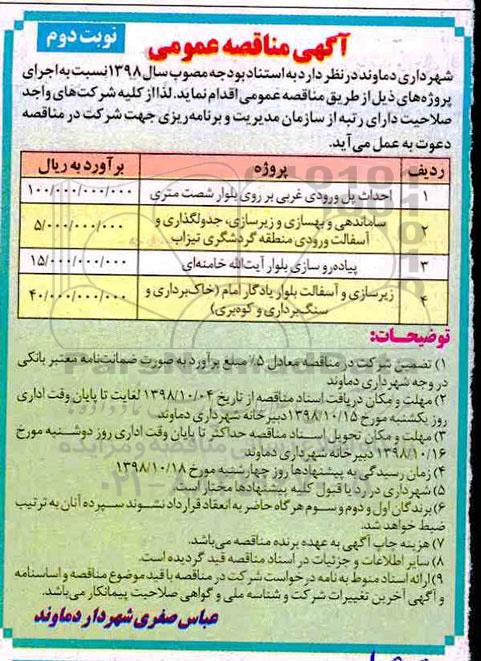 نوبت دوم
آگهی مناقصه عمومی
شهرداری دماوند در نظر دارد به استناد بودجه مصوب سال ۱۳۹۸ نسبت به اجرای
پروژه‌های ذیل از طریق مناقصه عمومی اقدام نماید. لذا از کلیه شرکت‌های واجد
صلاحیت دارای رتبه از سازمان مدیریت و برنامه‌ریزی جهت شرکت در مناقصه
دعوت به عمل می‌آید.
ردیف پروژه برآورد به ریال
۱ احداث پل ورودی غربی بر روی بلوار شصت متری ۱۰۰/۰۰۰/۰۰۰/۰۰۰
۲ ساماندهی و بهسازی و زیرسازی، جدولگذاری و
آسفالت ورودی منطقه گردشگری تیزآب ۵/۰۰۰/۰۰۰/۰۰۰
۳ پیاده‌رو سازی بلوار آیت‌الله خامنه‌ای ۱۵/۰۰۰/۰۰۰/۰۰۰
۴ زیرسازی و آسفالت بلوار یادگار امام (خاک‌برداری و
سنگ‌برداری و کوه‌بری) ۴۰/۰۰۰/۰۰۰/۰۰۰
توضیحات:
۱) تضمین شرکت در مناقصه معادل ۵٪ مبلغ برآورد به صورت ضمانت‌نامه معتبر بانکی
در وجه شهرداری دماوند
۲) مهلت و مکان دریافت اسناد مناقصه از تاریخ ۱۳۹۸/۱۰/۰۴ لغایت تا پایان وقت اداری
روز یکشنبه مورخ ۱۳۹۸/۱۰/۱۵ دبیرخانه شهرداری دماوند
۳) مهلت و مکان تحویل اسناد مناقصه حداکثر تا پایان وقت اداری روز دوشنبه مورخ
۱۳۹۸/۱۰/۱۶ دبیرخانه شهرداری دماوند
۴) زمان رسیدگی به پیشنهادها روز چهارشنبه مورخ ۱۳۹۸/۱۰/۱۸
۵) شهرداری در رد یا قبول کلیه پیشنهادها مختار است.
۶) برندگان اول و دوم و سوم هرگاه حاضر به انعقاد قرارداد نشوند سپرده آنان به ترتیب
ضبط خواهد شد.
۷) هزینه چاپ آگهی به عهده برنده مناقصه می‌باشد.
۸) سایر اطلاعات و جزئیات در اسناد مناقصه قید گردیده است.
۹) ارائه اسناد منوط به نامه درخواست شرکت در مناقصه با قید موضوع مناقصه و اساسنامه
و آگهی آخرین تغییرات شرکت و شناسه ملی و گواهی صلاحیت پیمانکار می‌باشد.
عباس صفری شهردار دماوند